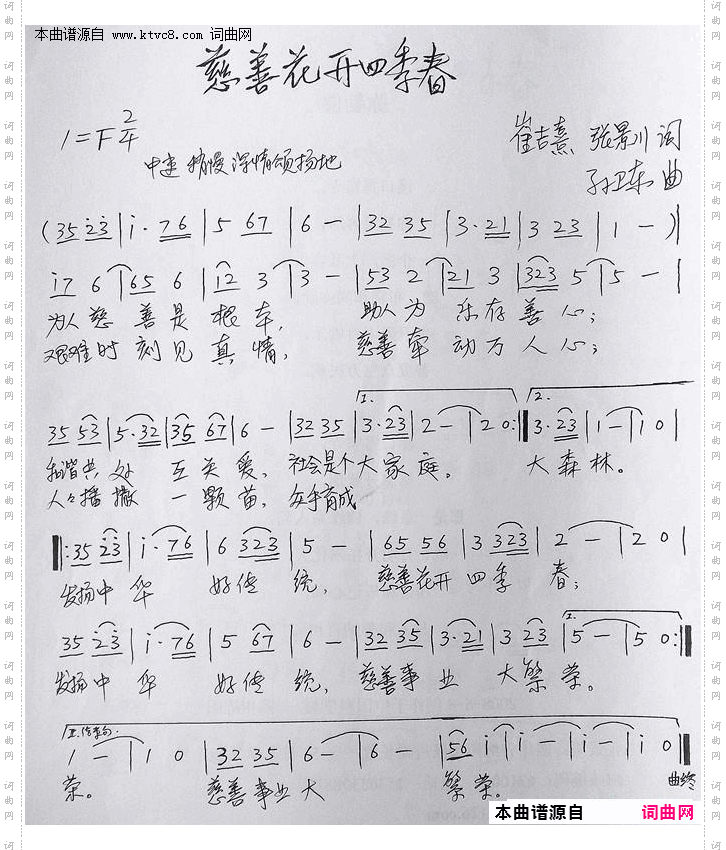 本曲谱源自 www.ktvc8.com 词曲网
慈善花开四季春
1=F 2/4
中速 稍慢 深情颂扬地
崔吉熹 张景川 词
孙卫东 曲
(35 23|i·76|5 67|6 -|32 35|3·21|3 23|1 -)|
i7 6|65 6|i2 3|3 -|53 2|21 3|323 5|5 -|
为人慈善是根本, 助人为乐存善心;
艰难时刻见真情, 慈善牵动万人心;
1. 2.
35 53|5·32|35 67|6 -|32 35|3·23|2 -|2 0:‖3·23|1 -|1 0|
和谐共处 互关爱, 社会是个大家庭。 大森林。
人人播撒 一颗苗, 众手育成
‖:35 23|i·76|6 323|5 -|65 56|3 323|2 -|2 0|
发扬中华 好传统, 慈善花开四季春;
1.
35 23|i·76|5 67|6 -|32 35|3·21|3 23|5 -|5 0:‖
发扬中华 好传统, 慈善事业 大繁荣。
2.结束句
1 -|1 0|32 35|6 -|6 -|56 i|i -|i -|i 0‖
荣。 慈善事业大 繁荣。 曲终
本曲谱源自 词曲网